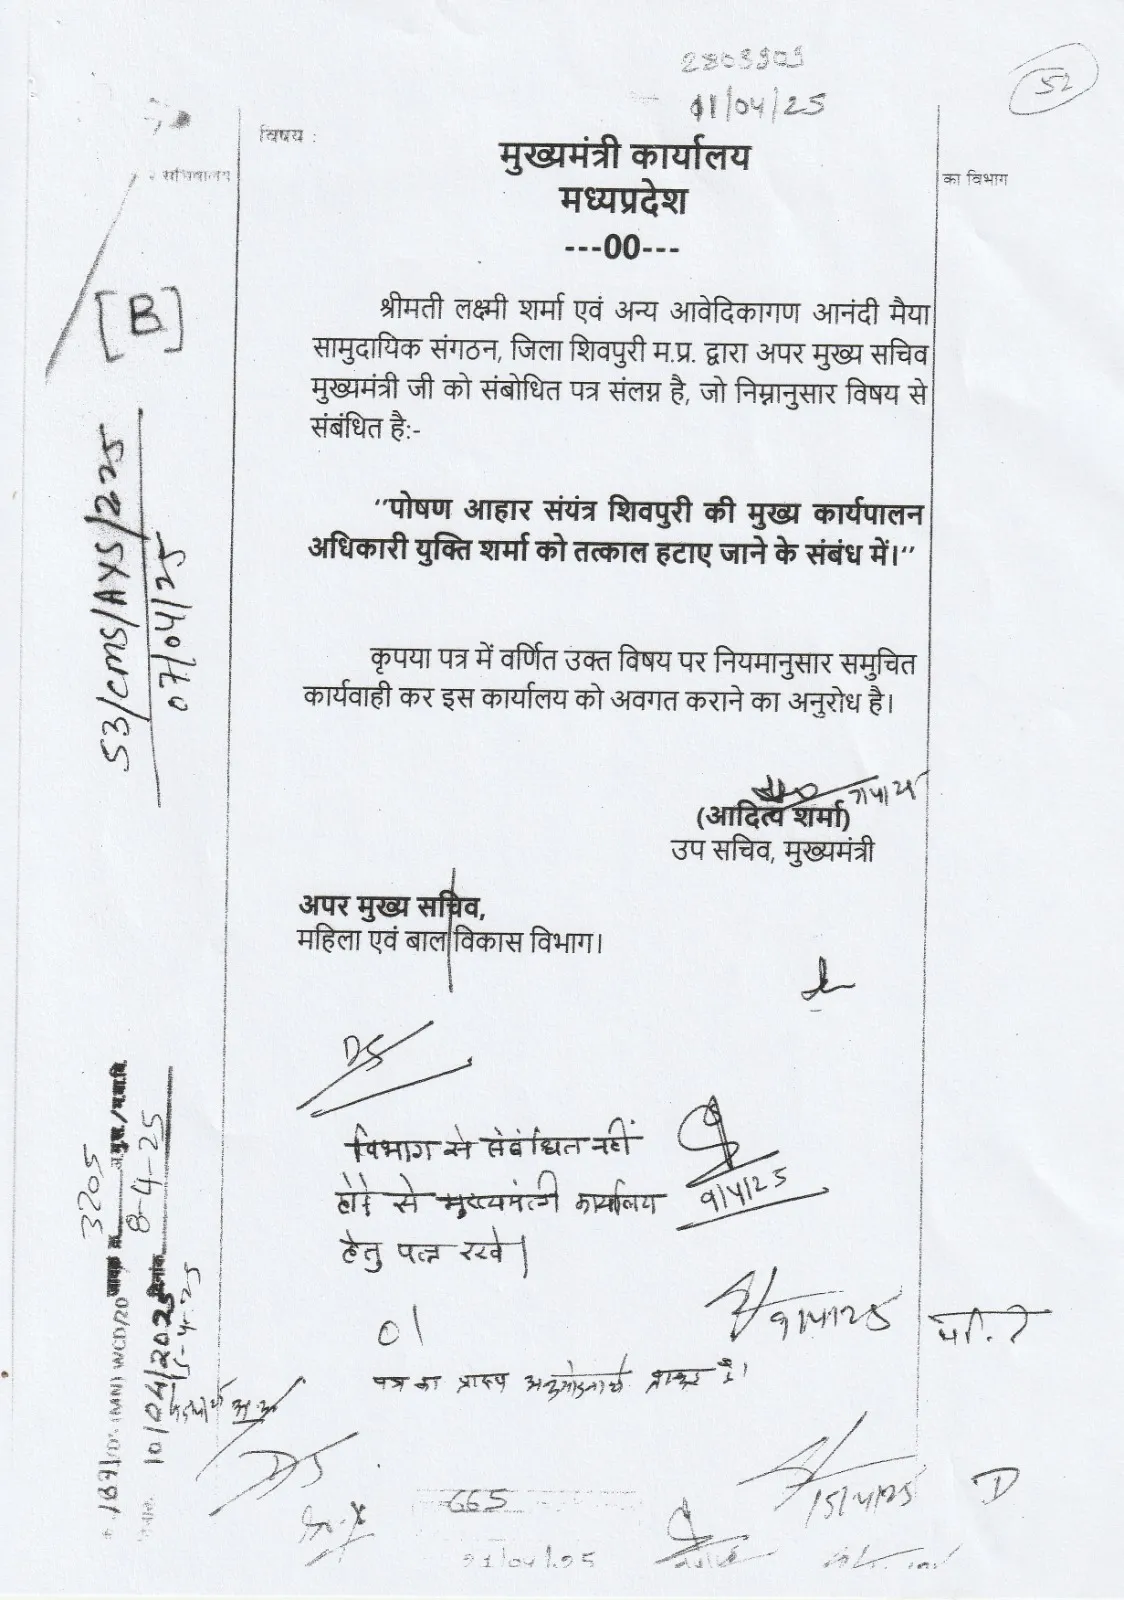 2803909
11/04/25
52
विषय :
सचिवालय
का विभाग
मुख्यमंत्री कार्यालय
मध्यप्रदेश
---00---
[B]
श्रीमती लक्ष्मी शर्मा एवं अन्य आवेदिकागण आनंदी मैया
सामुदायिक संगठन, जिला शिवपुरी म.प्र. द्वारा अपर मुख्य सचिव
मुख्यमंत्री जी को संबोधित पत्र संलग्न है, जो निम्नानुसार विषय से
संबंधित है:-
53/CMS/AYS/225
07/04/25
''पोषण आहार संयंत्र शिवपुरी की मुख्य कार्यपालन
अधिकारी युक्ति शर्मा को तत्काल हटाए जाने के संबंध में।''
कृपया पत्र में वर्णित उक्त विषय पर नियमानुसार समुचित
कार्यवाही कर इस कार्यालय को अवगत कराने का अनुरोध है।
7/4/25
(आदित्य शर्मा)
उप सचिव, मुख्यमंत्री
अपर मुख्य सचिव,
महिला एवं बाल विकास विभाग।
DS
विभाग से संबंधित नहीं
होने से मुख्यमंत्री कार्यालय
हेतु पत्र रखें।
9/4/25
जावक क्र. 3205 अ.मु.स./म.बा.वि.
दिनांक 8-4-25
WCD/20
10/04/2025
15-4-25
01
9/4/25
पत्र का प्रारूप अनुमोदनार्थ प्रस्तुत है।
DS
15/4/25
D
665
21/04/25